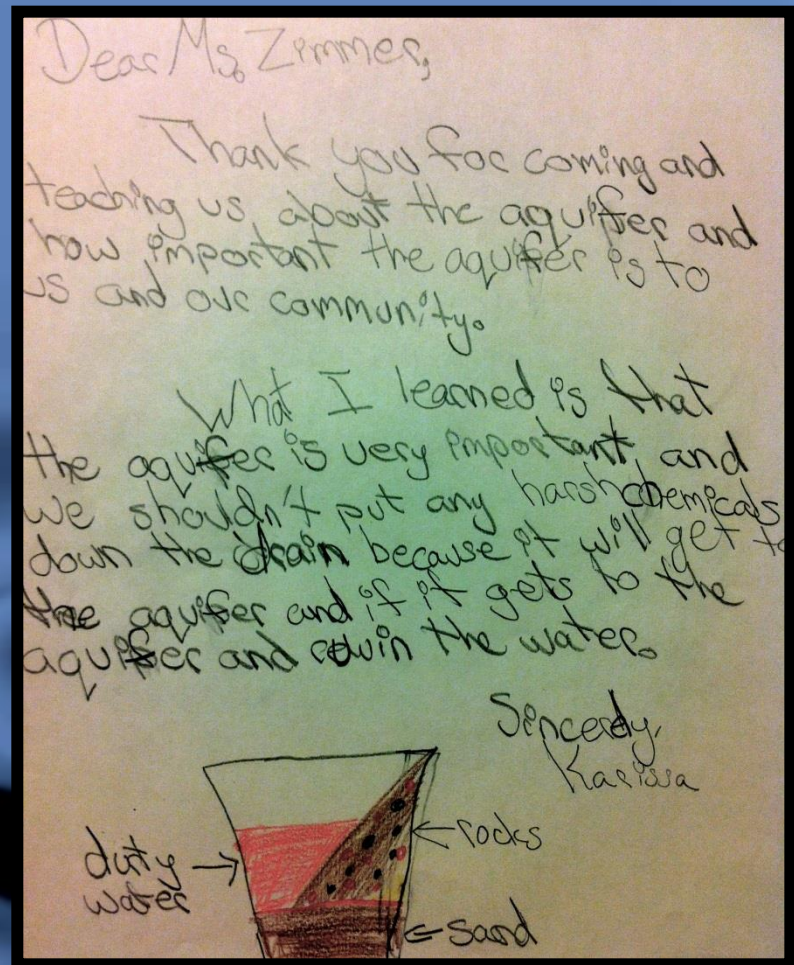 Dear Ms. Zimmer,
Thank you for coming and
teaching us about the aquifer and
how important the aquifer is to
us and our community.
What I learned is that
the aquifer is very important and
we shouldn't put any harsh chemicals
down the drain because it will get to
the aquifer and if it gets to the
aquifer and ruwin the water.
Sincerely,
Karissa
rocks
dirty
water
sand